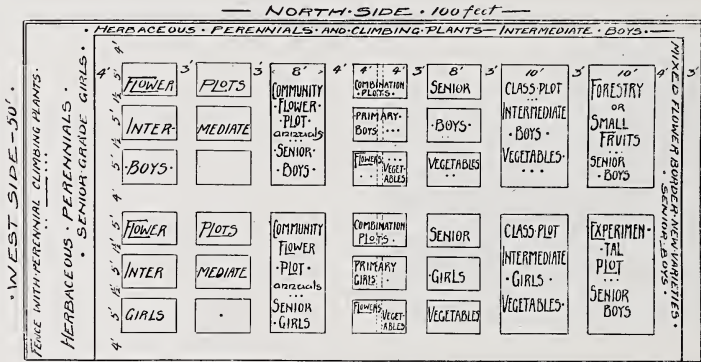 — NORTH·SIDE · 100 feet —
· HERBACEOUS · PERENNIALS · AND · CLIMBING · PLANTS — INTERMEDIATE · BOYS · —
· WEST SIDE – 50' ·
FENCE WITH PERENNIAL CLIMBING PLANTS ·
HERBACEOUS · PERENNIALS ·
· SENIOR GRADE GIRLS ·
4' 3' 3' 8' 4' 4' 4' 3' 8' 3' 10' 3' 10' 4' 3'
4' 5' 1½ 5' 1½ 5' 4' 5' 1½' 5' 1½ 5' 4'
FLOWER PLOTS
INTER· MEDIATE
·BOYS·
COMMUNITY
·FLOWER·
·PLOT·
annuals
...
·SENIOR·
·BOYS·
COMBINATION
·PLOTS·
·PRIMARY·
BOYS ...
FLOWERS ...
VEGET-
ABLES
SENIOR
·BOYS·
VEGETABLES
CLASS·PLOT
INTERMEDIATE
·BOYS·
VEGETABLES·
...
FORESTRY
OR
SMALL
FRUITS
...
SENIOR
BOYS
FLOWER PLOTS
INTER MEDIATE
GIRLS
COMMUNITY
FLOWER
·PLOT·
annuals
...
SENIOR
·GIRLS
COMBINATION
PLOTS·
PRIMARY
GIRLS
FLOWERS
VEGET-
ABLES
SENIOR
·GIRLS
VEGETABLES
CLASS·PLOT
INTERMEDIATE
·GIRLS·
VEGETABLES·
EXPERIMEN-
TAL
PLOT
...
SENIOR
BOYS
MIXED FLOWER BORDER · NEW VARIETIES ·
· SENIOR · BOYS ·